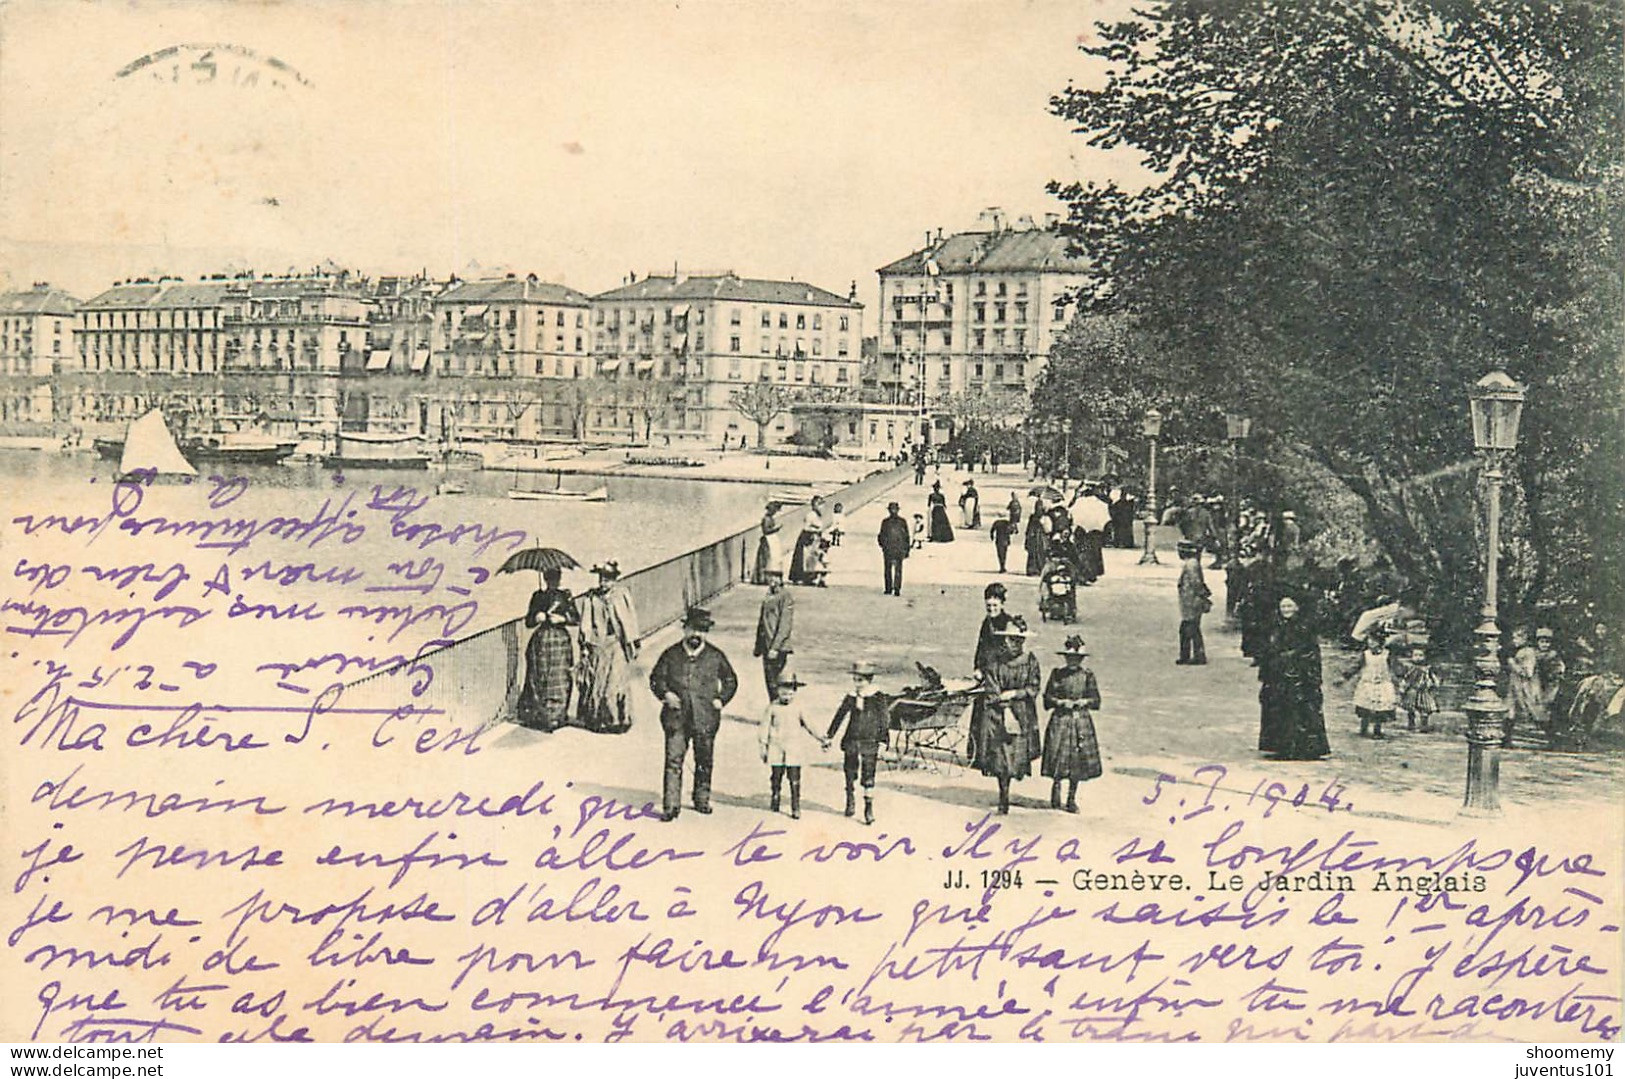 5. I. 1904.
Ma chère S. C'est
demain mercredi que
je pense enfin aller te voir. Il y a si longtemps que
JJ. 1294 – Genève. Le Jardin Anglais
je me propose d'aller à Nyon que je saisis le 1er après-
midi de libre pour faire un petit saut vers toi. J'espère
que tu as bien commencé l'année, enfin tu me raconteras
tout cela demain. J'arriverai par le train qui part de
Genève à 2.15 h.
mes salutations
à ton mari & bien des
choses affectueuses pour
toi.
www.delcampe.net
www.delcampe.net
shoomemy
juventus101